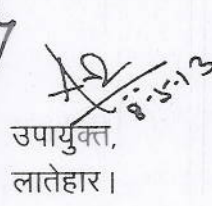 8.5.13
उपायुक्त,
लातेहार।